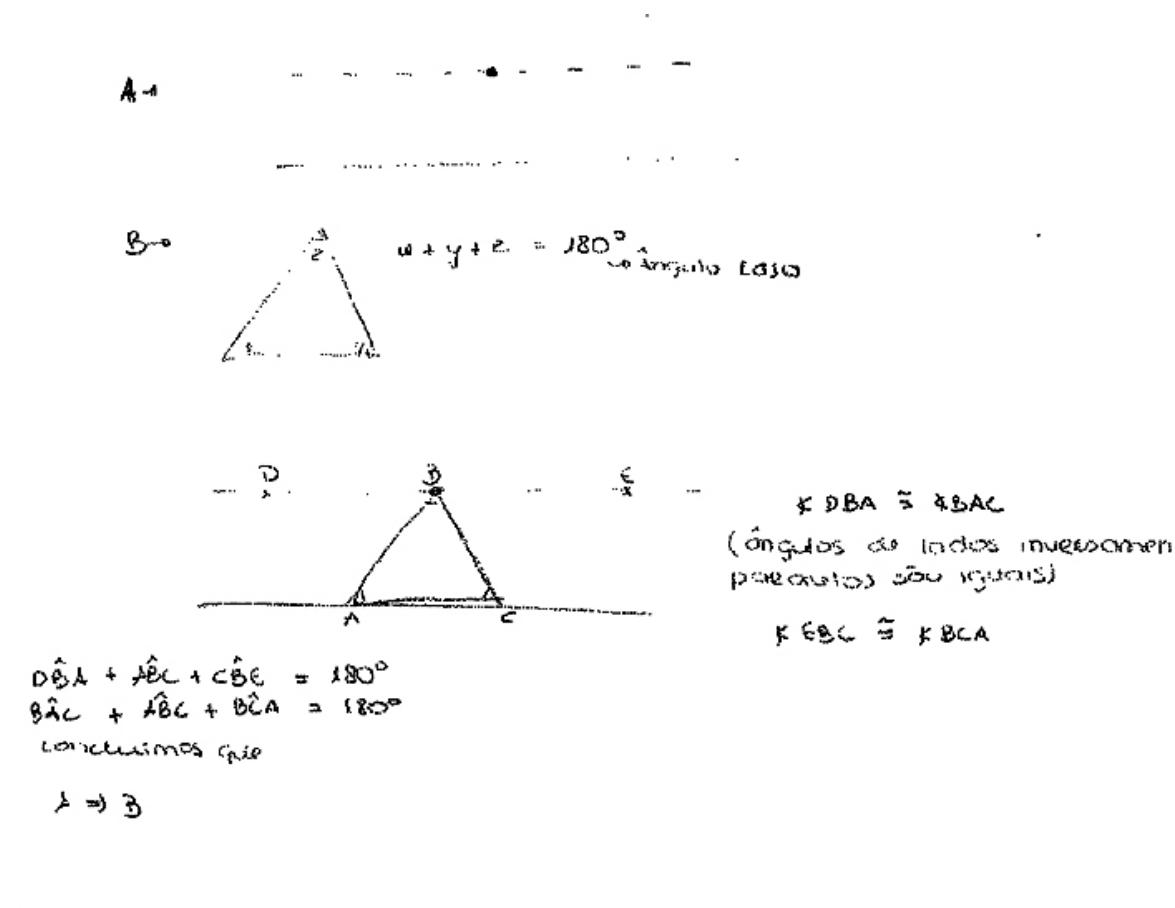 A→
B→
w + y + z = 180°
↳ ângulo raso
D B E
A C
∢ DBA ≅ ∢BAC
(ângulos de lados inversamen
paralelos são iguais)
∢ EBC ≅ ∢ BCA
DB̂A + AB̂C + CB̂E = 180°
BÂC + AB̂C + BĈA = 180°
concluimos que
A ⇒ B